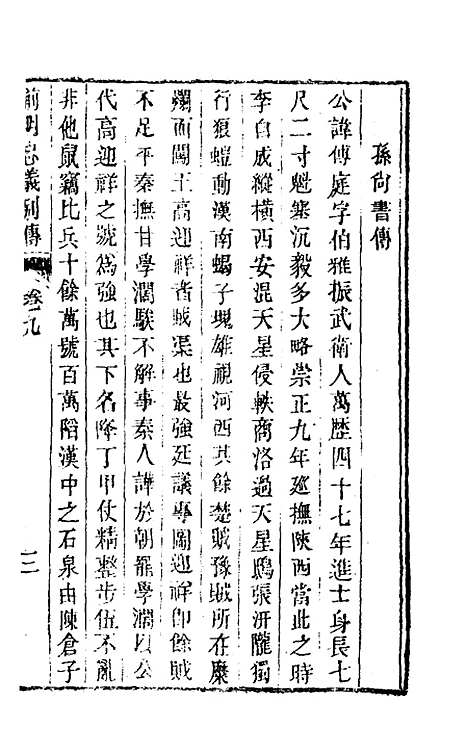 孫尙書傳
公諱傅庭字伯雅振武衛人萬歷四十七年進士身長七
尺二寸魁塞沉毅多大略崇正九年廵撫陝西當此之時
李自成縱橫西安混天星侵軼商洛過天星鴟張汧隴獨
行狼螘動漢南蝎子塊雄視河西其餘楚賊豫賊所在麋
爛而闖王高迎祥者賊渠也最強延議專圖迎祥卽餘賊
不足平秦撫甘學濶騃不解事秦人譁於朝罷學濶以公
代高迎祥之號爲強也其下名降丁甲仗精整步伍不亂
非他鼠竊比兵十餘萬號百萬䧟漢中之石泉由陳倉子
前明忠義别傳
卷九
二